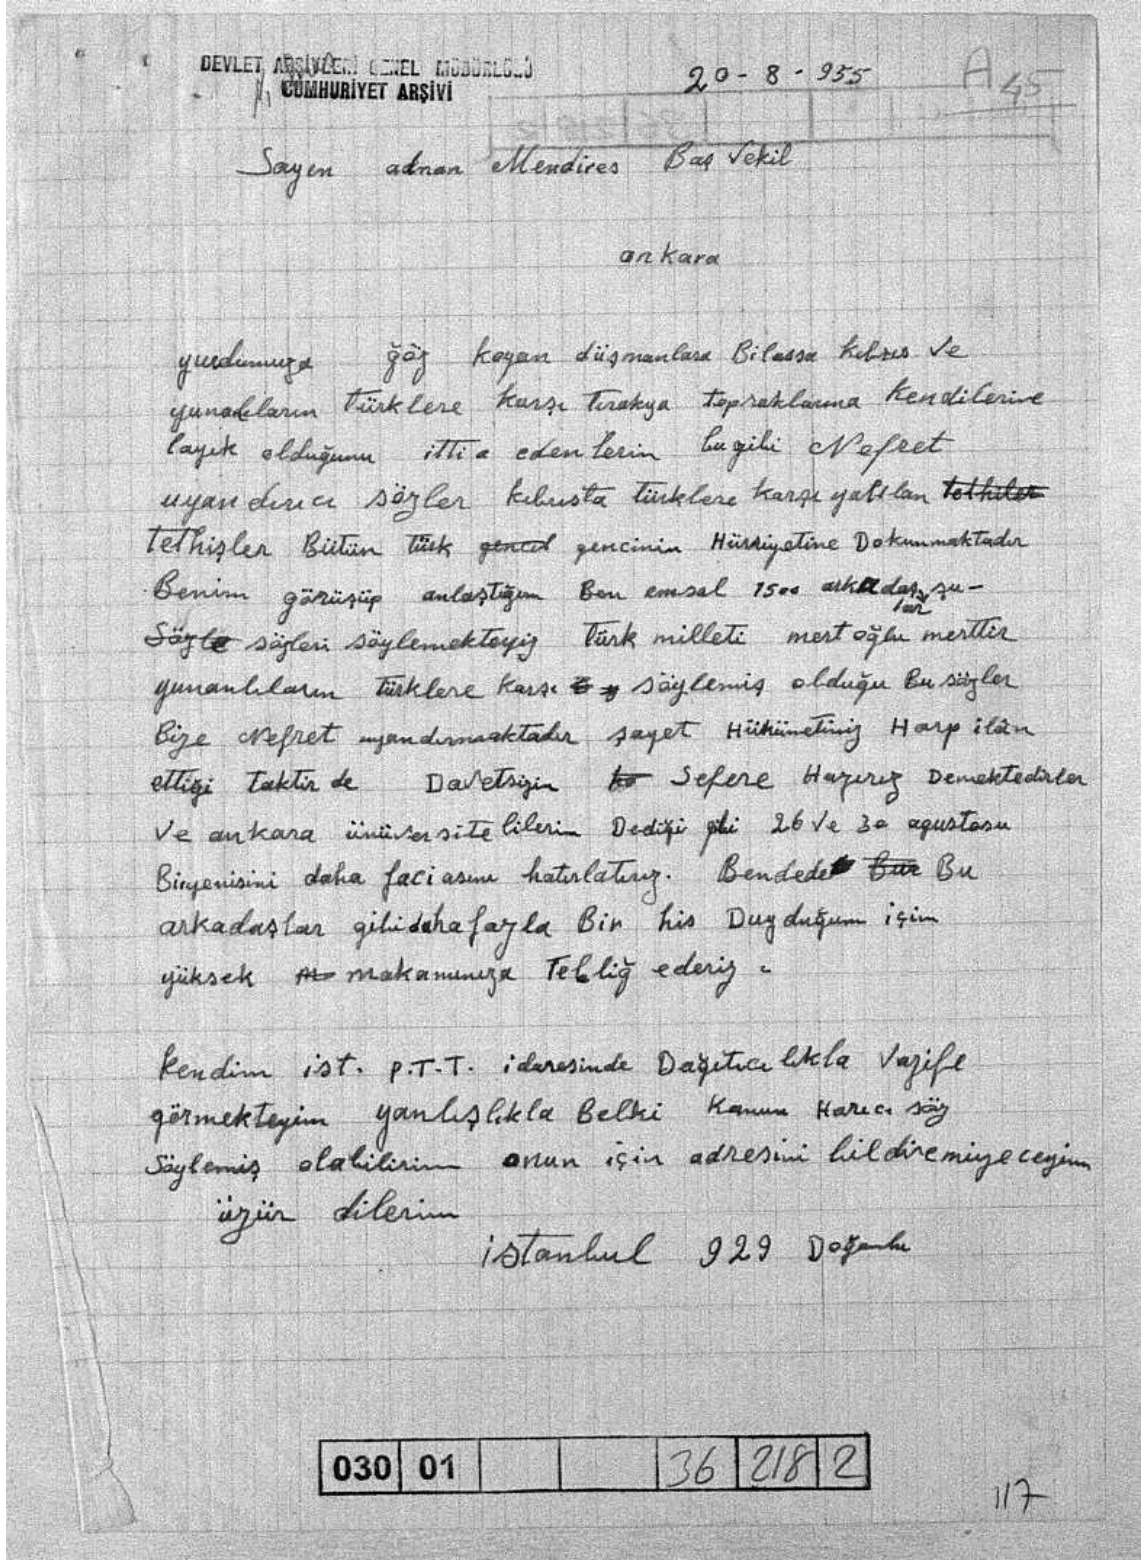 DEVLET ARŞİVLERİ GENEL MÜDÜRLÜĞÜ
CUMHURİYET ARŞİVİ
20-8-955
A 45
Sayen adnan Mendires Baş Vekil
ankara
yurdumuza ğöz koyan düşmanlara Bilassa kıbrıs Ve
yunanlıların Türklere karşı Tırakya topraklarına kendilerine
layık olduğunu ittia edenlerin bu gibi Nefret
uyandırıcı sözler kıbrısta türklere karşı yatılan tethiler
tethişler Bütün türk gencinin Hürriyetine Dokunmaktadır
Benim görüşüp anlaştığım Ben emsal 1500 arkadaşlar şu-
Sözle sözleri söylemekteyiz Türk milleti mert oğlu merttir
yunanlıların türklere karşı söylemiş olduğu Bu sözler
Bize Nefret uyandırmaktadır şayet Hükümetimiz Harp ilân
ettiği taktir de Davetsizin Sefere Hazırız Demektedirler
Ve ankara ünüversitelilerin Dediği gibi 26 Ve 30 agustosu
Biryenisini daha faciasını hatırlatırız. Bendede Bu
arkadaşlar gibi daha fazla Bir his Duyduğum için
yüksek makamınıza Tebliğ ederiz.
Kendim ist. P.T.T. idaresinde Dağıtıcılıkla Vazife
görmekteyim yanlışlıkla Belki Kanun Harıcı söz
Söylemiş olabilirim onun için adresini bildiremiyeceyim
üzür dilerim
istanbul 929 Doğumlu
030 01 36 218 2
117